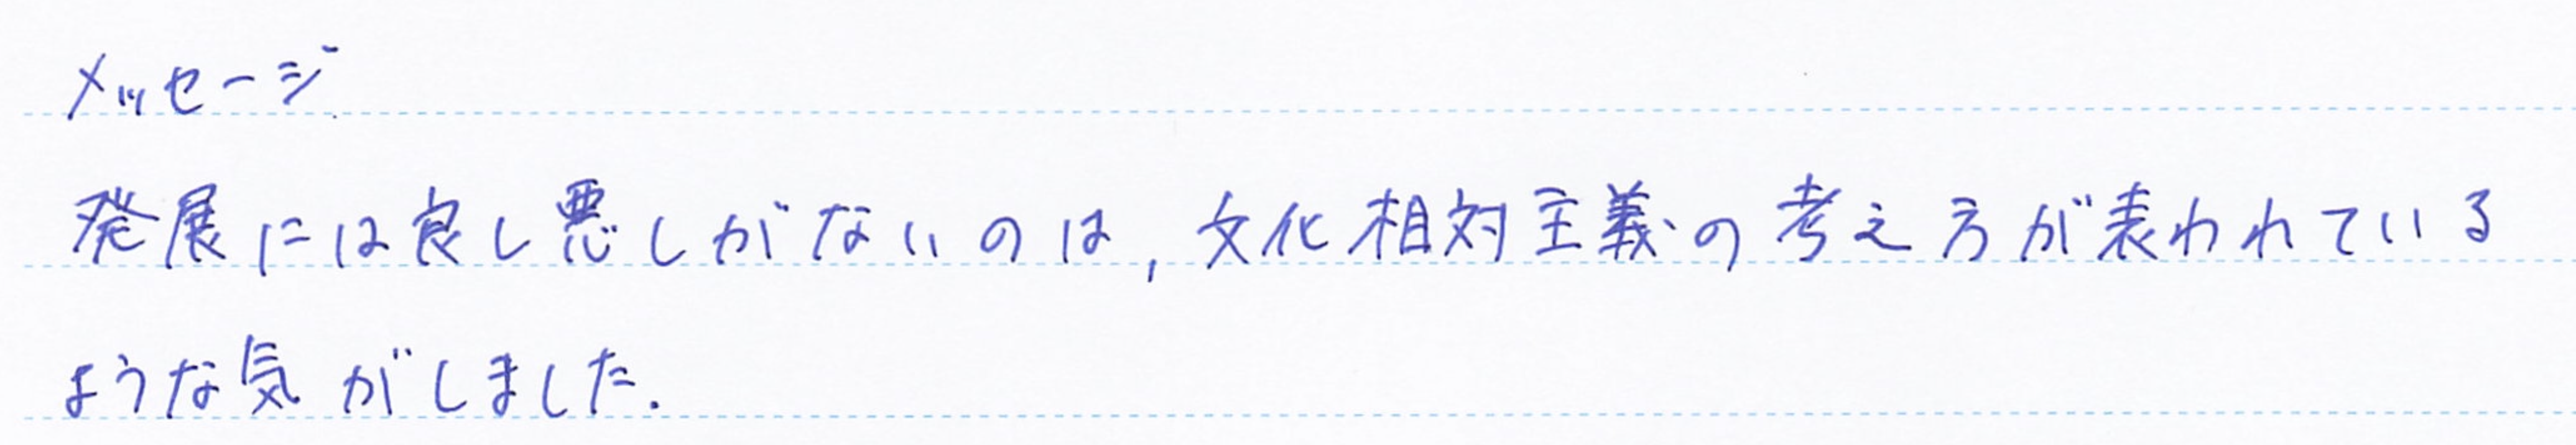 メッセージ
発展には良し悪しがないのは,文化相対主義の考え方が表われている
ような気がしました.